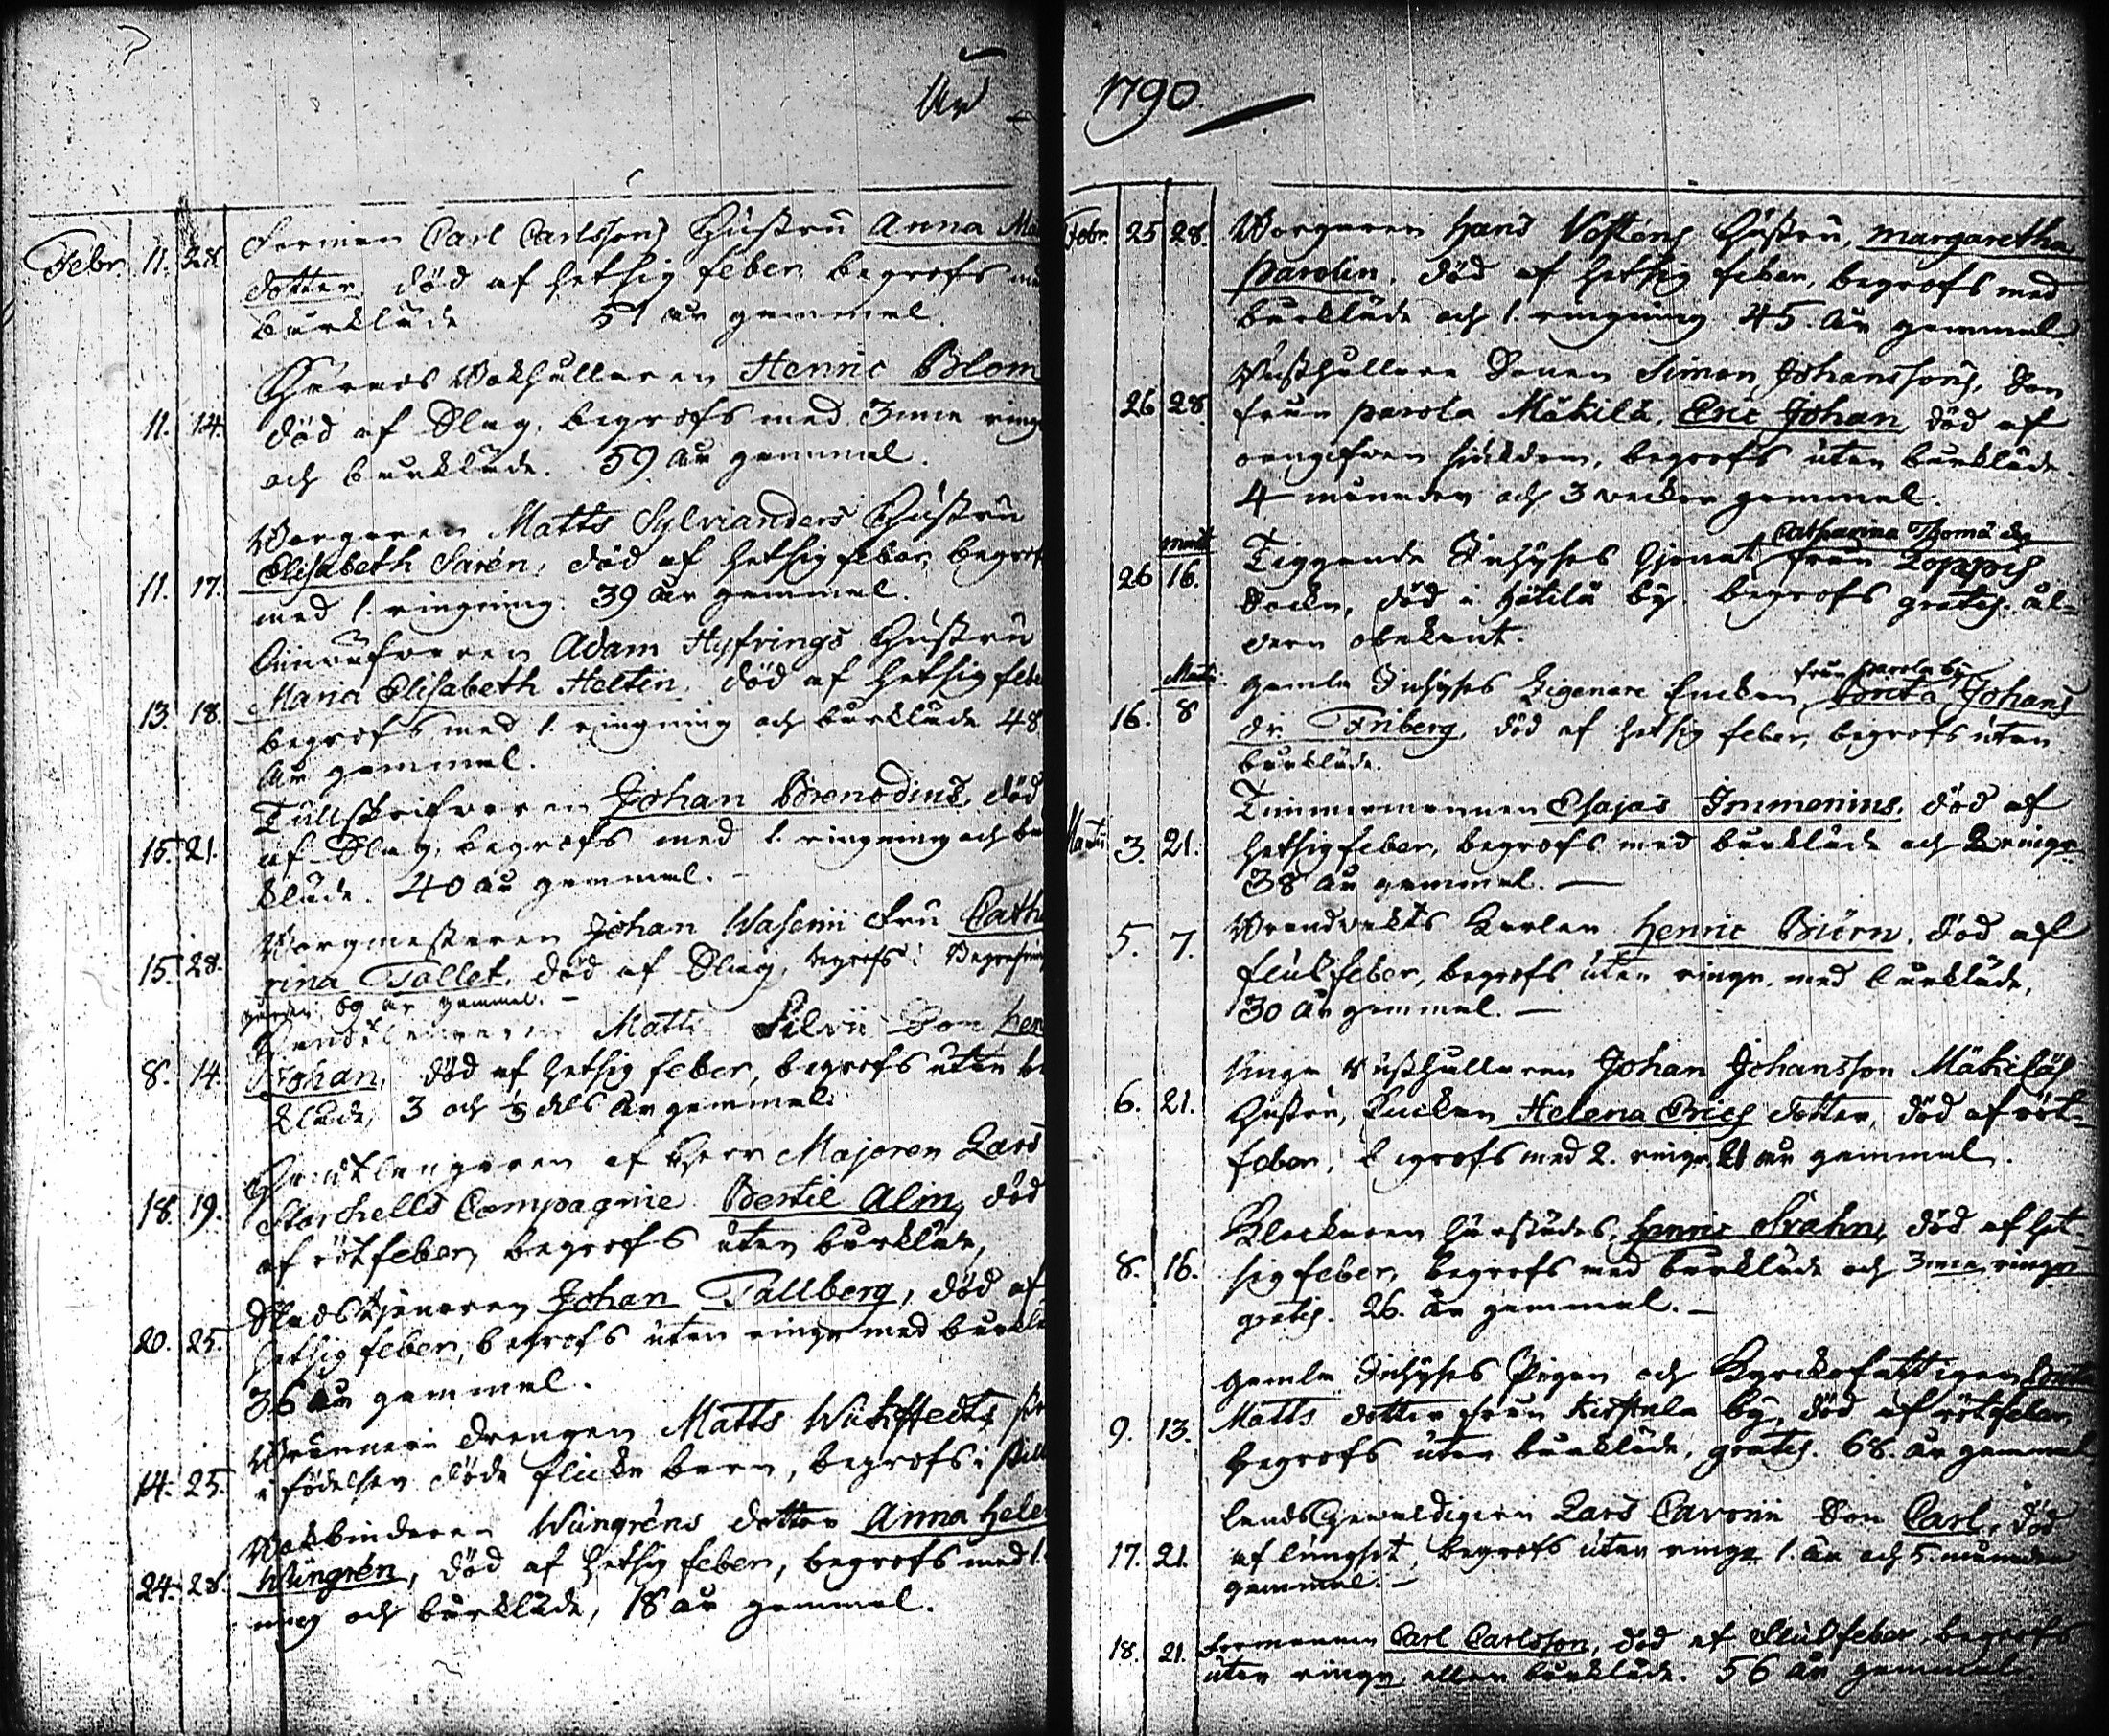 År
Febr. 11. Forman Carl Carlssons Hustru Anna
dotter, död af hetsig feber, begrofs
bårkläde 51 år gammal.
Wakthållaren Henric Blom
11. 14. död af Slag, begrofs med 3nne
och bårkläde. 59 år gammal.
Borgaren Matts Sylvianders Hustru
Elisabeth Sarén, död af hetsig feber, begrof
11. 17. med 1. ringning. 39 år gammal.
Adam Hyfrings Hustru
Maria Elisabeth Heltin, död af hetsig
13. 18. begrofs med 1. ringning och bårkläde 48
år gammal.
Tullskrifvaren Johan död
15. 21. af Slag, begrofs med 1. ringning och
kläde. 40 år gammal. -
Borgmästaren Johan Wasenii Fru Catha
15. 28. rina Tollet, död af Slag, begrofs i
69 år gammal. -
Matts Silvii Son
8. 14. Johan, död af hetsig feber, begrofs utan
kläde, 3 och dels år gammal.
Handtlangaren af Herr Majoren Lars
18. 19. Starchells Compagnie Bertil Alm, död
af rötfeber, begrofs utan bårkläde,
Stadstjenaren Johan Tallberg, död af
20. 25. hetsig feber, begrofs utan ringn med
36 år gammal.
drengen Matts
14. 25. i födelsen döde flicke barn, begrofs i
Bokbinderen Wångréns dotter Anna
24. 28. Wångrén, död af hetsig feber, begrofs med 1.
ning och bårkläde, 18 år gammal.
1790
Febr. 25 28. Borgaren Hans Hustru, Margaretha
Parolin, död af hetsig feber, begrofs med
bårkläde och 1. ringning 45. år gammal
Rusthållare Sonen Simon Johanssons, Son
26 28 från Parola Mäkilä, Eric Johan, död af
oangifven siukdom, begrofs utan bårkläde.
4 månader och 3 veckor gammal.
Catharina Thoma dr
26 16. Tiggande Inhyses Hjonet från
Sockn, död i Hätilä by. begrofs gratis. ål-
dern obekant.
från Parola by
16. 8 Gamla Inhyses Enkan Brita Johans
dr. Friberg, död af hetsig feber, begrofs utan
bårkläde.
Timmermannen Esajas Immonius, död af
3. 21. hetsig feber, begrofs med bårkläde och 2 ringn
38 år gammal. -
5. 7. Brandvakts Karlen Henric Biörn, död af
fläckfeber, begrofs utan ringn. med bårkläde,
30 år gammal. -
unga Rusthållaren Johan Johansson Mäkiläs
6. 21. Hustru, Helena Erics dotter, död af röt-
feber, begrofs med 2. ringn. 21 år gammal.
Klockaren härstädes, Henric Strahn, död af het-
8. 16. sig feber, begrofs med bårkläde och 3nne ringn
gratis. 26. år gammal. -
Gamla Inhyses Pigan och Kyrckofattigen Brita
9. 13. Matts dotter från by, död af rötfeber
begrofs utan bårkläde, gratis. 68. år gammal
Lars Cavonii Son Carl, död
17. 21. af lungsot, begrofs utan ringn 1. år och 5. månader
gammal. -
18. 21. Formannen Carl Carlsson, död af fläckfeber, begrofs
utan ringn eller bårkläde. 56 år gammal.